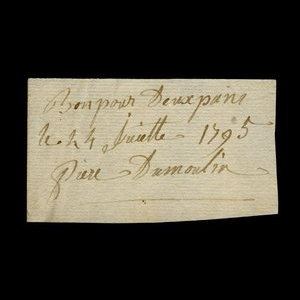 Bon pour Deux pains
le 24 Juiette 1795
Piere Dumoulin